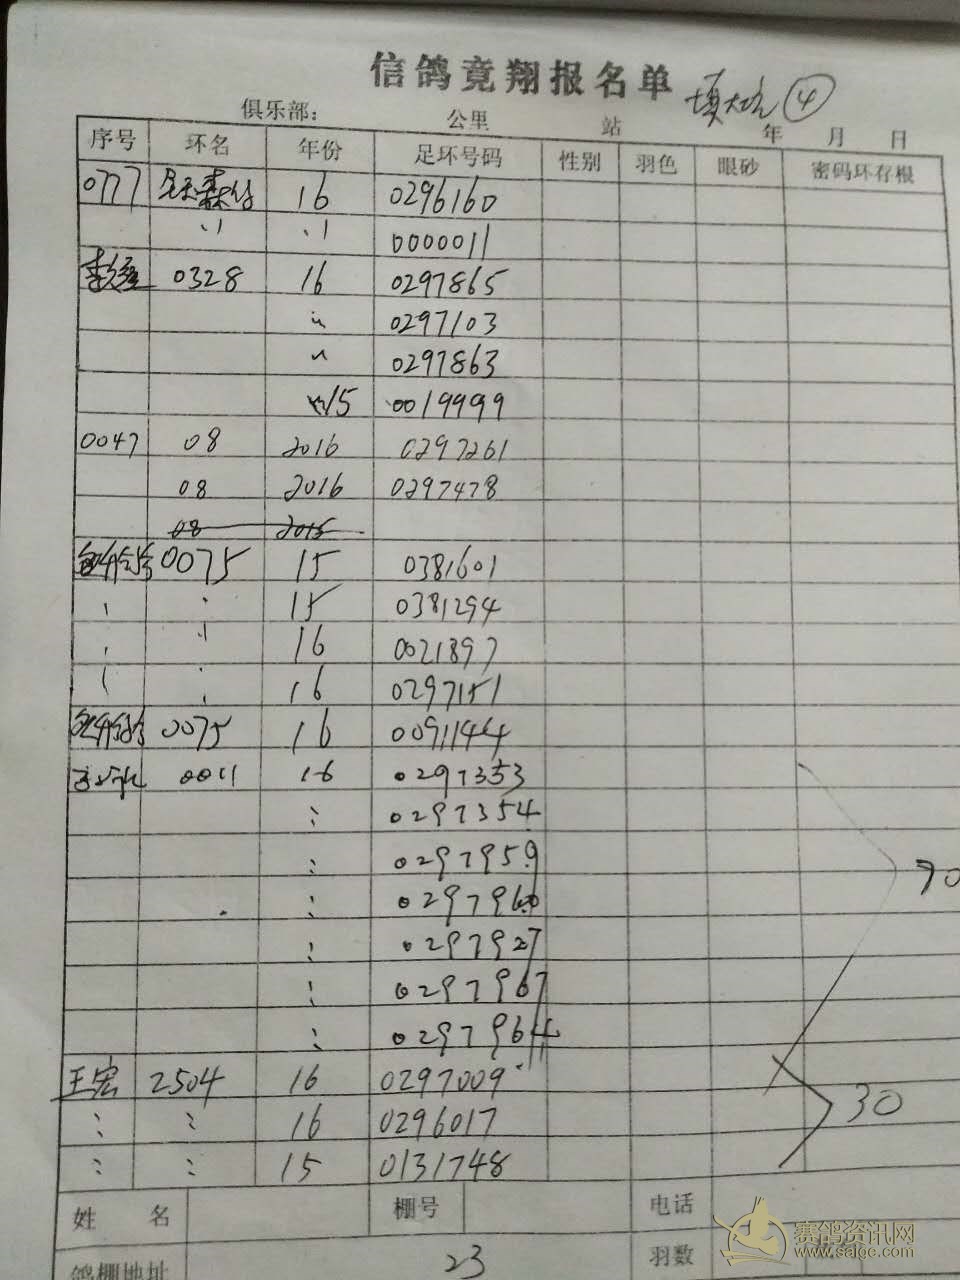 信鸽竞翔报名单
④
俱乐部: 公里 站 年 月 日
序号 环名 年份 足环号码 性别 羽色 眼砂 密码环存根
0777 16 0296160
〃 〃 0000011
0328 16 0297865
〃 0297103
〃 0297863
15 0019999
0047 08 2016 0297261
08 2016 0297478
08 2015
0075 15 0381601
15 0381294
〃 16 0021897
16 0297151
0075 16 0091144
0011 16 0297353
0297354
0297959
70
0297960
0297927
0297967
0297964
王宏 2504 16 0297009
16 0296017
30
15 0131748
姓名 棚号 电话
鸽棚地址 23 羽数
赛鸽资讯网
www.saigc.com